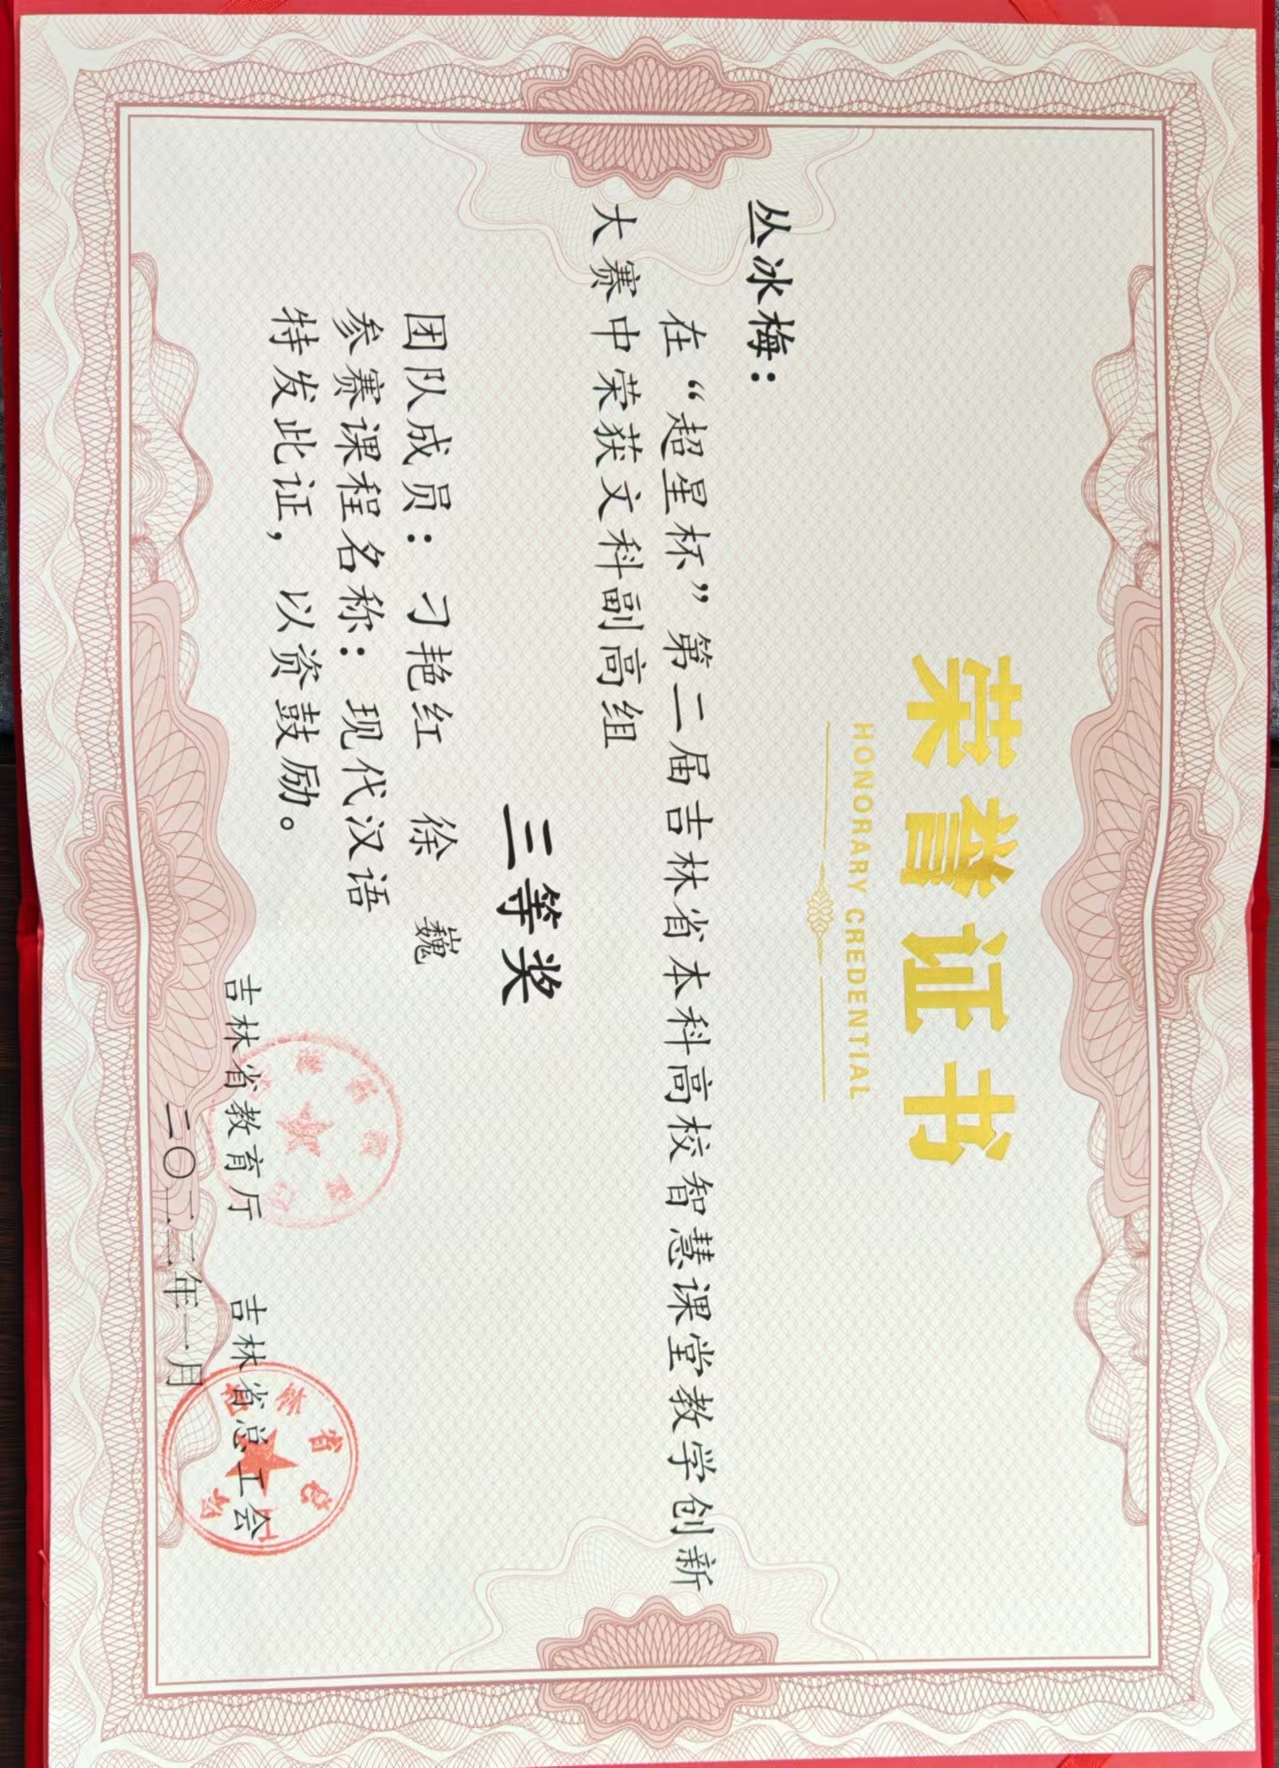 荣誉证书
HONORARY CREDENTIAL
丛冰梅：
在“超星杯”第二届吉林省本科高校智慧课堂教学创新
大赛中荣获文科副高组
三等奖
团队成员：刁艳红 徐 巍
参赛课程名称：现代汉语
特发此证，以资鼓励。
吉林省教育厅 吉林省总工会
二〇二二年一月